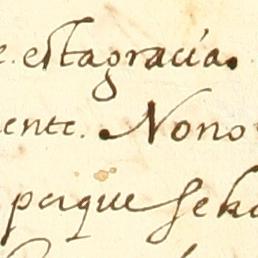 e. esta gracia.
ente. Nono
perque seha